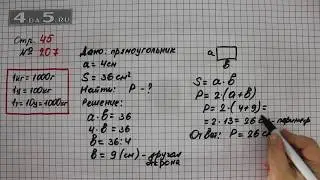 4DA5.RU
Стр. 45
№ 207
1кг=1000г
1ц=100кг
1т=10ц=1000кг
Дано: прямоугольник
a = 4см
S = 36 см²
Найти: P - ?
Решение:
a · b = 36
4 · b = 36
b = 36:4
b = 9 (см) - другая
сторона
a
b
S = a · b
P = 2 · (a+b)
P = 2 · (4+9) =
= 2 · 13 = 26 см - периметр
Ответ: P = 26 см